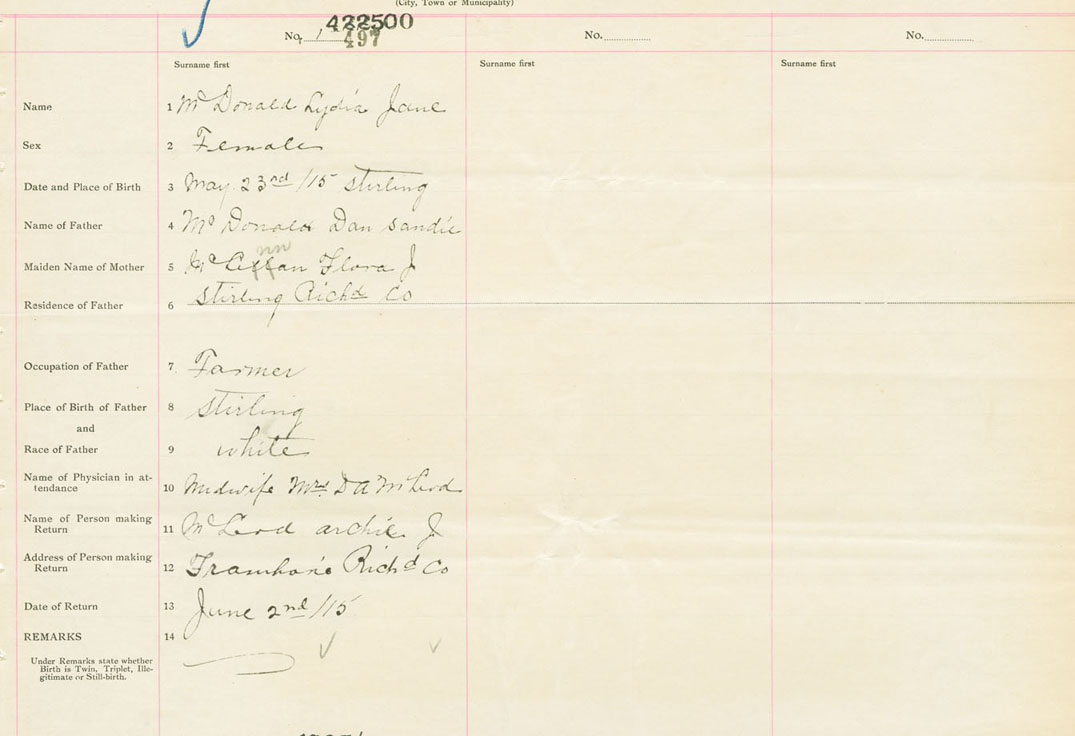 (City, Town or Municipality)
422500
No. 1 497 No. No.
Surname first Surname first Surname first
Name 1 Mc Donald Lydia Jane
Sex 2 Female
Date and Place of Birth 3 May 23rd /15 Stirling
Name of Father 4 Mc Donald Dan Sandie
nn
Maiden Name of Mother 5 Flora J
Residence of Father 6 Stirling Richd Co
Occupation of Father 7 Farmer
Place of Birth of Father 8 Stirling
and
Race of Father 9 white
Name of Physician in at-
tendance 10 Midwife Mrs D A McLeod
Name of Person making
Return 11 McLeod archie J
Address of Person making
Return 12 Richd Co
Date of Return 13 June 2nd /15
REMARKS 14
Under Remarks state whether
Birth is Twin, Triplet, Ille-
gitimate or Still-birth.